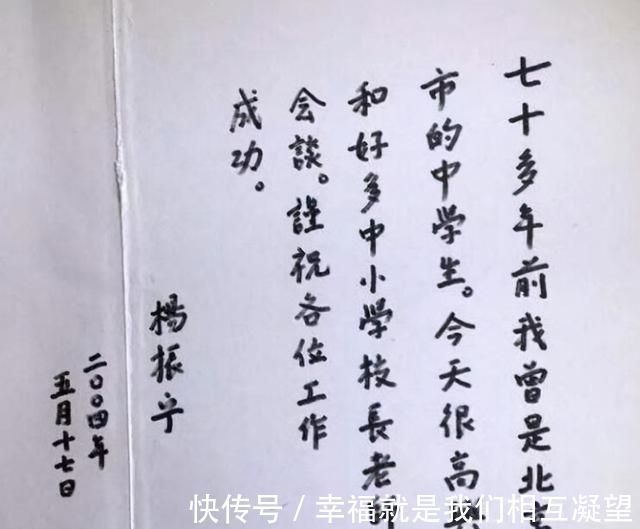 七十多年前我曾是北
市的中学生。今天很高
和好多中小学校長老
会談。謹祝各位工作
成功。
楊振宁
二〇〇四年
五月十七日
快传号／幸福就是我们相互凝望